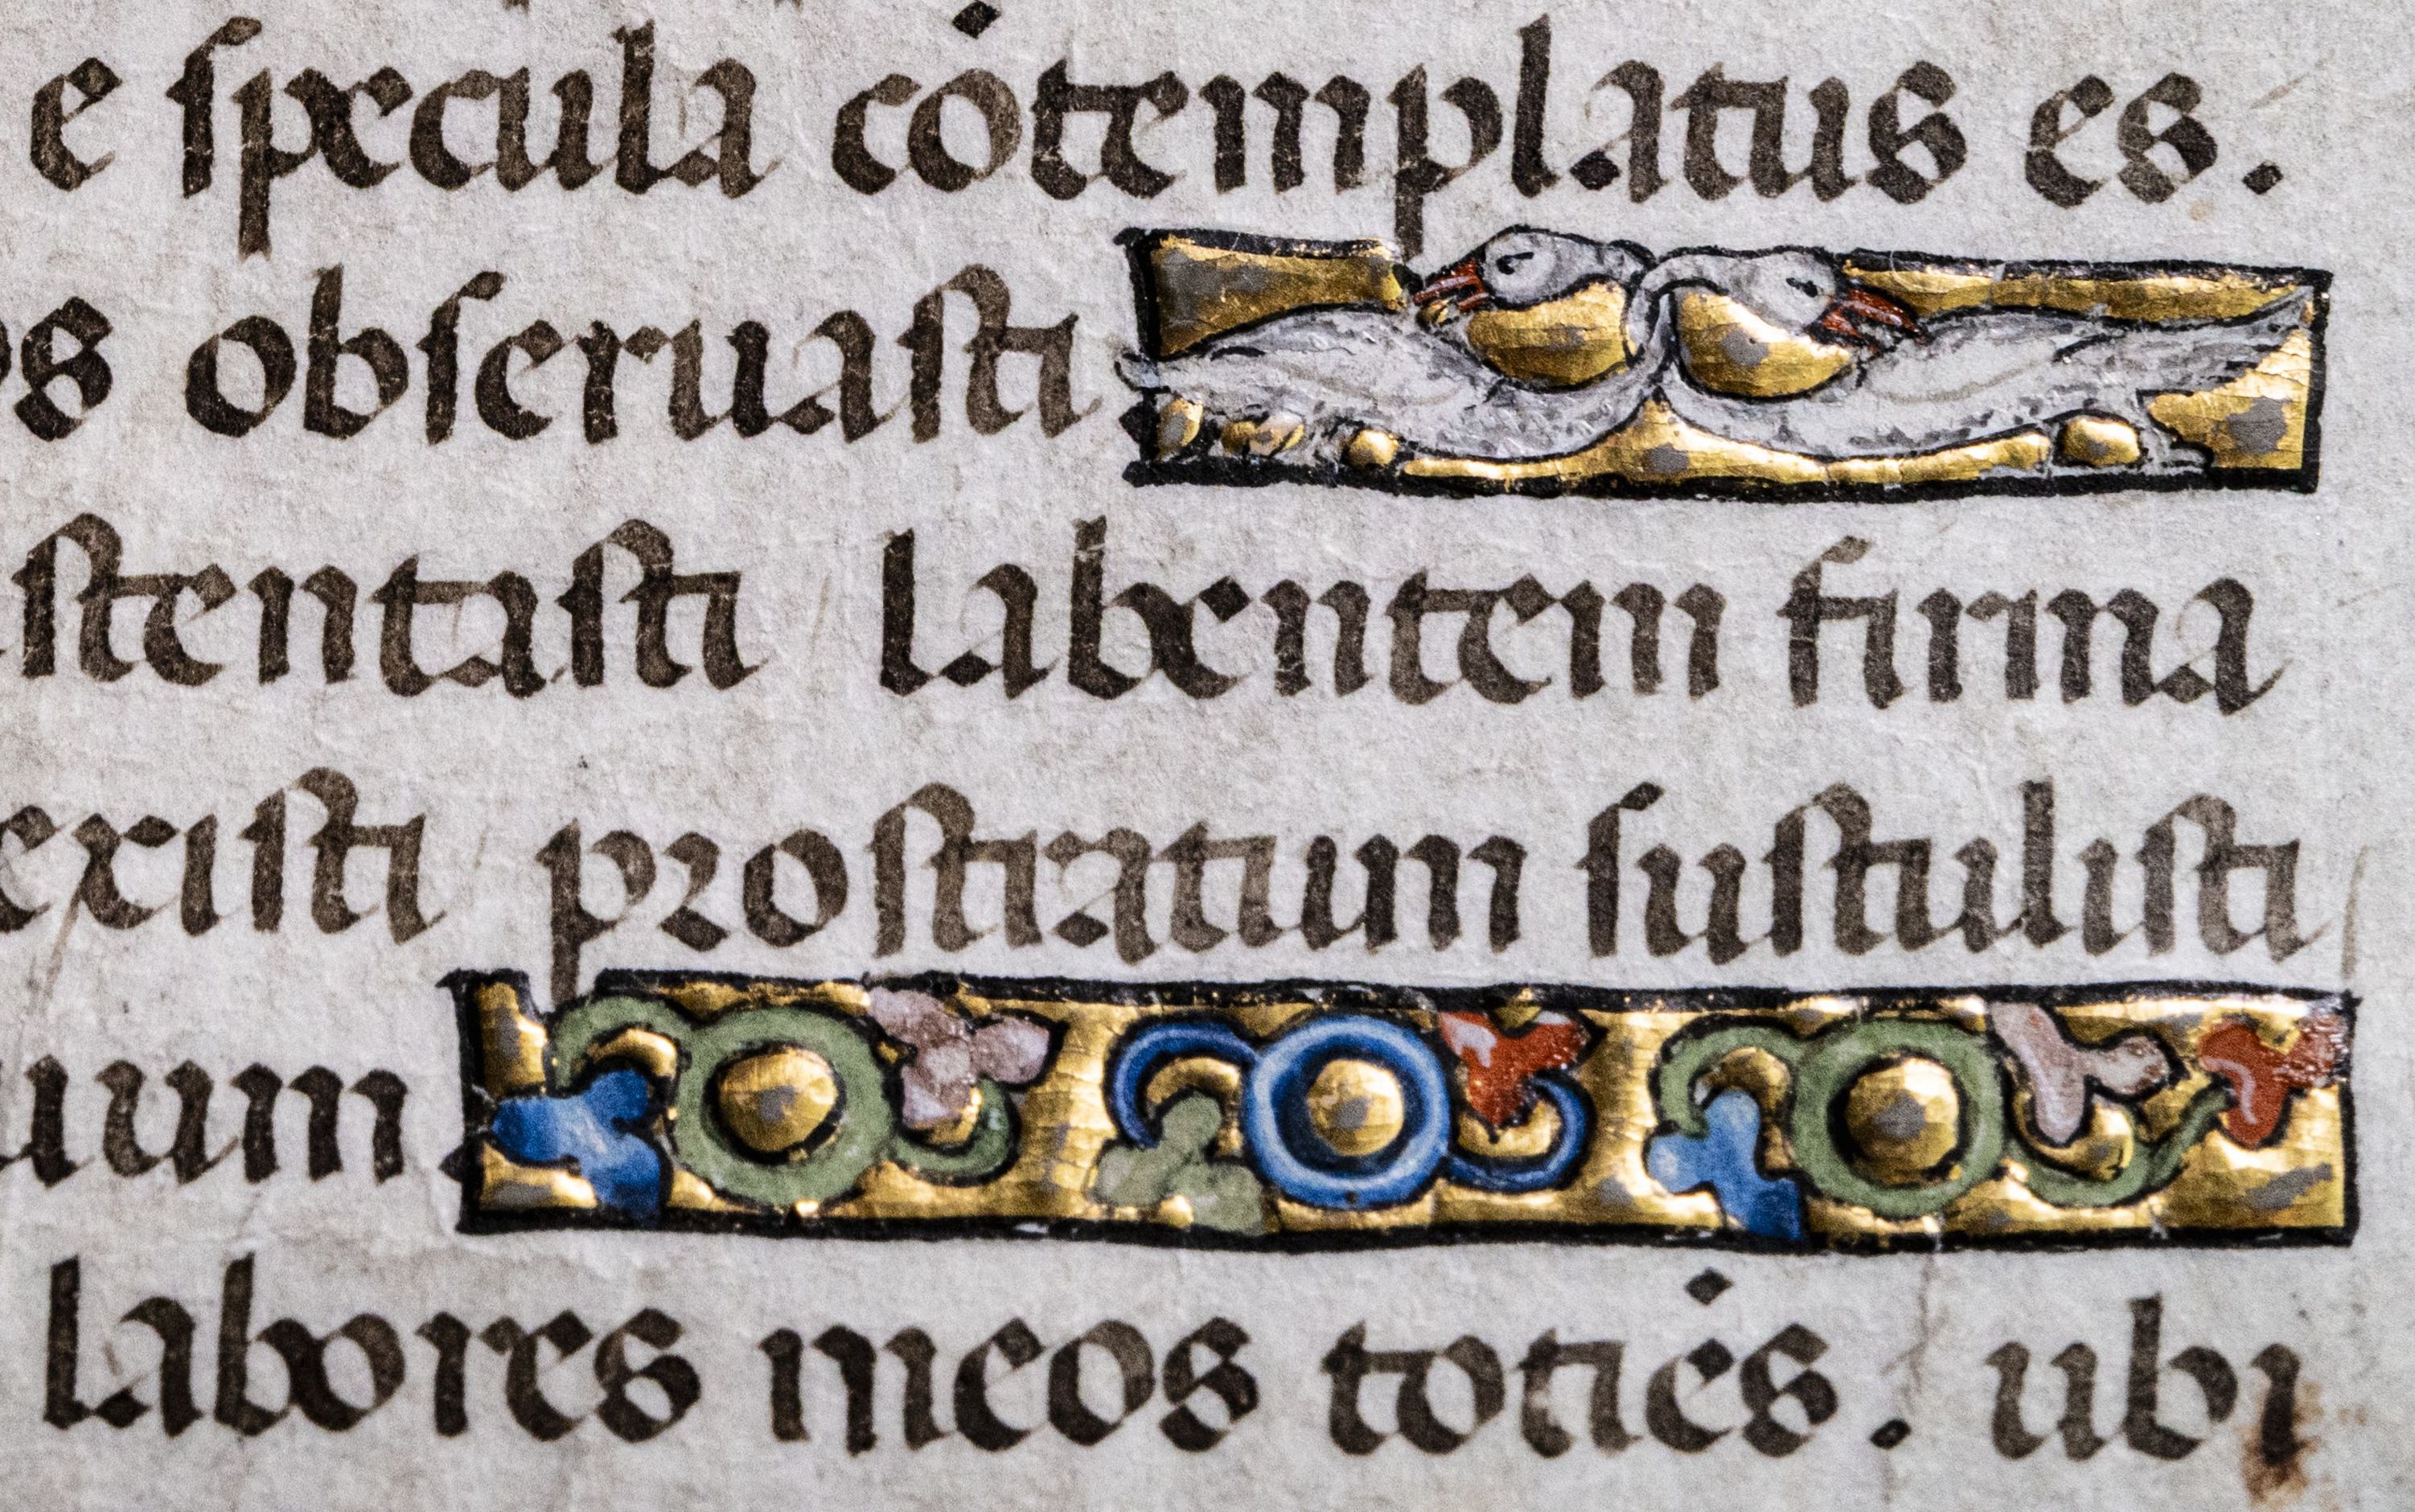 e specula cȯtemplatus es.
os obseruasti
stentasti labentem firma
existi prostratum sustulisti
uum
labores meos totiės. ubi